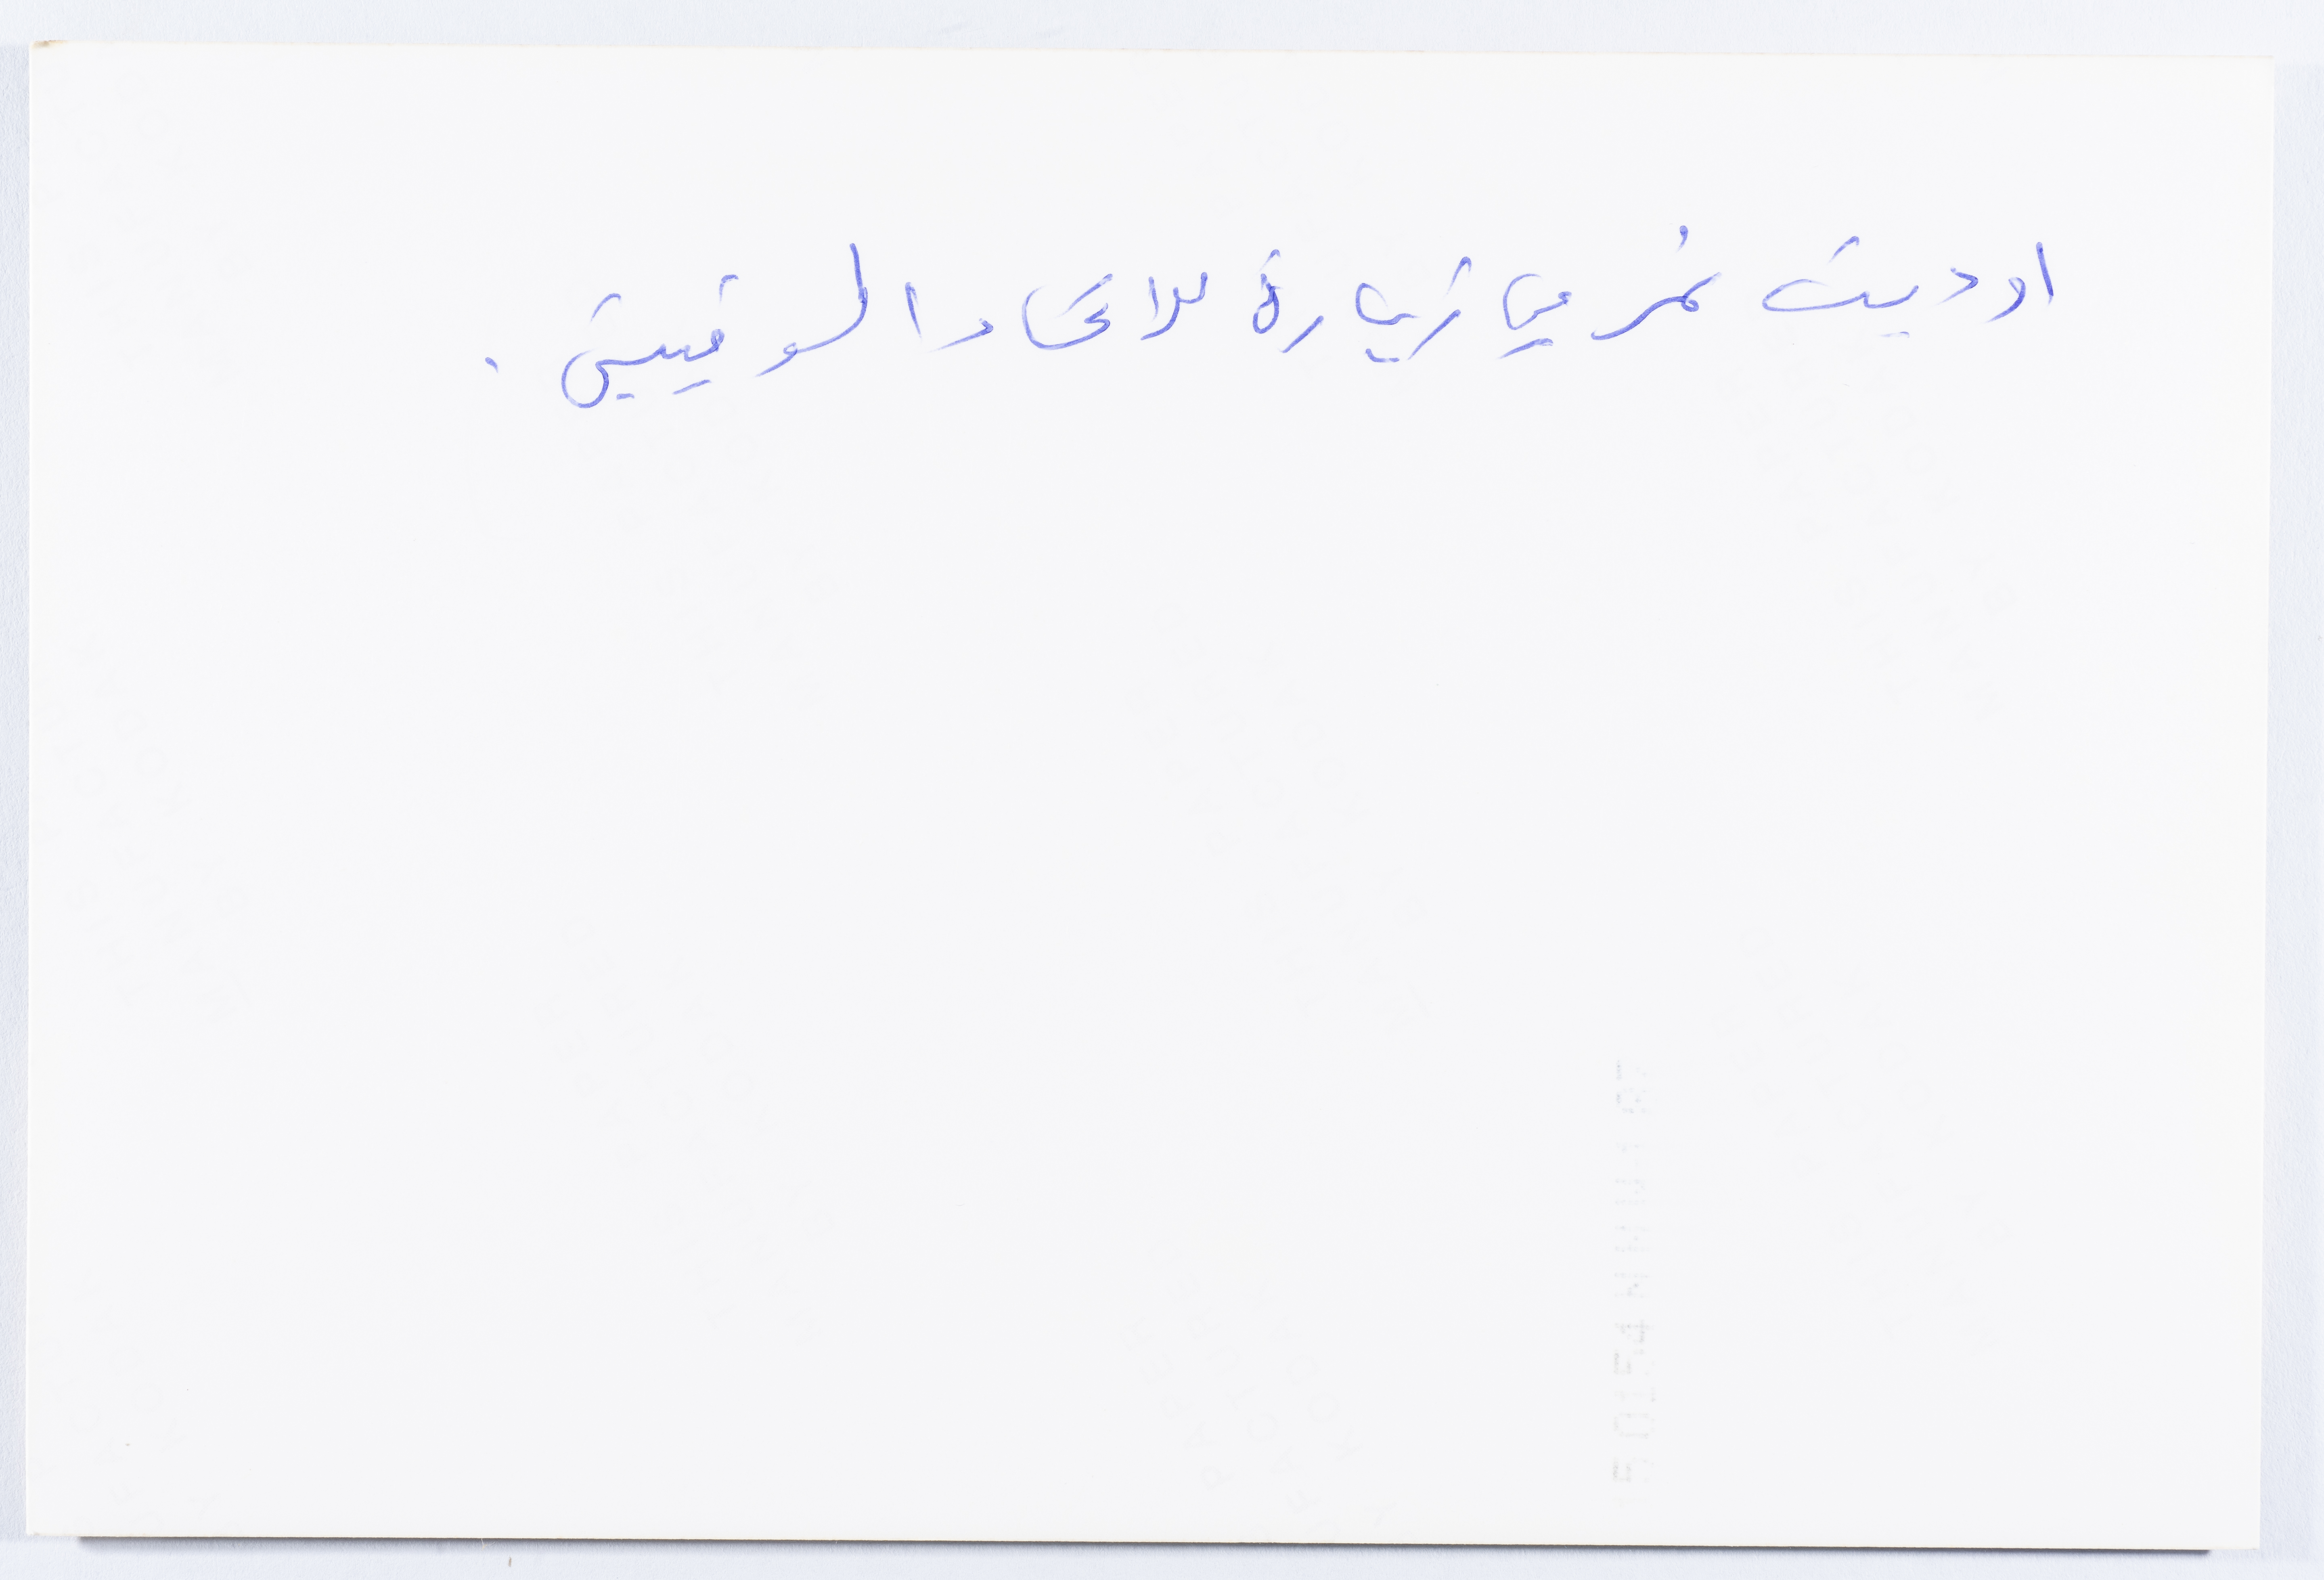 اوديت نمر في زيارة للاتحاد السوفييتي .